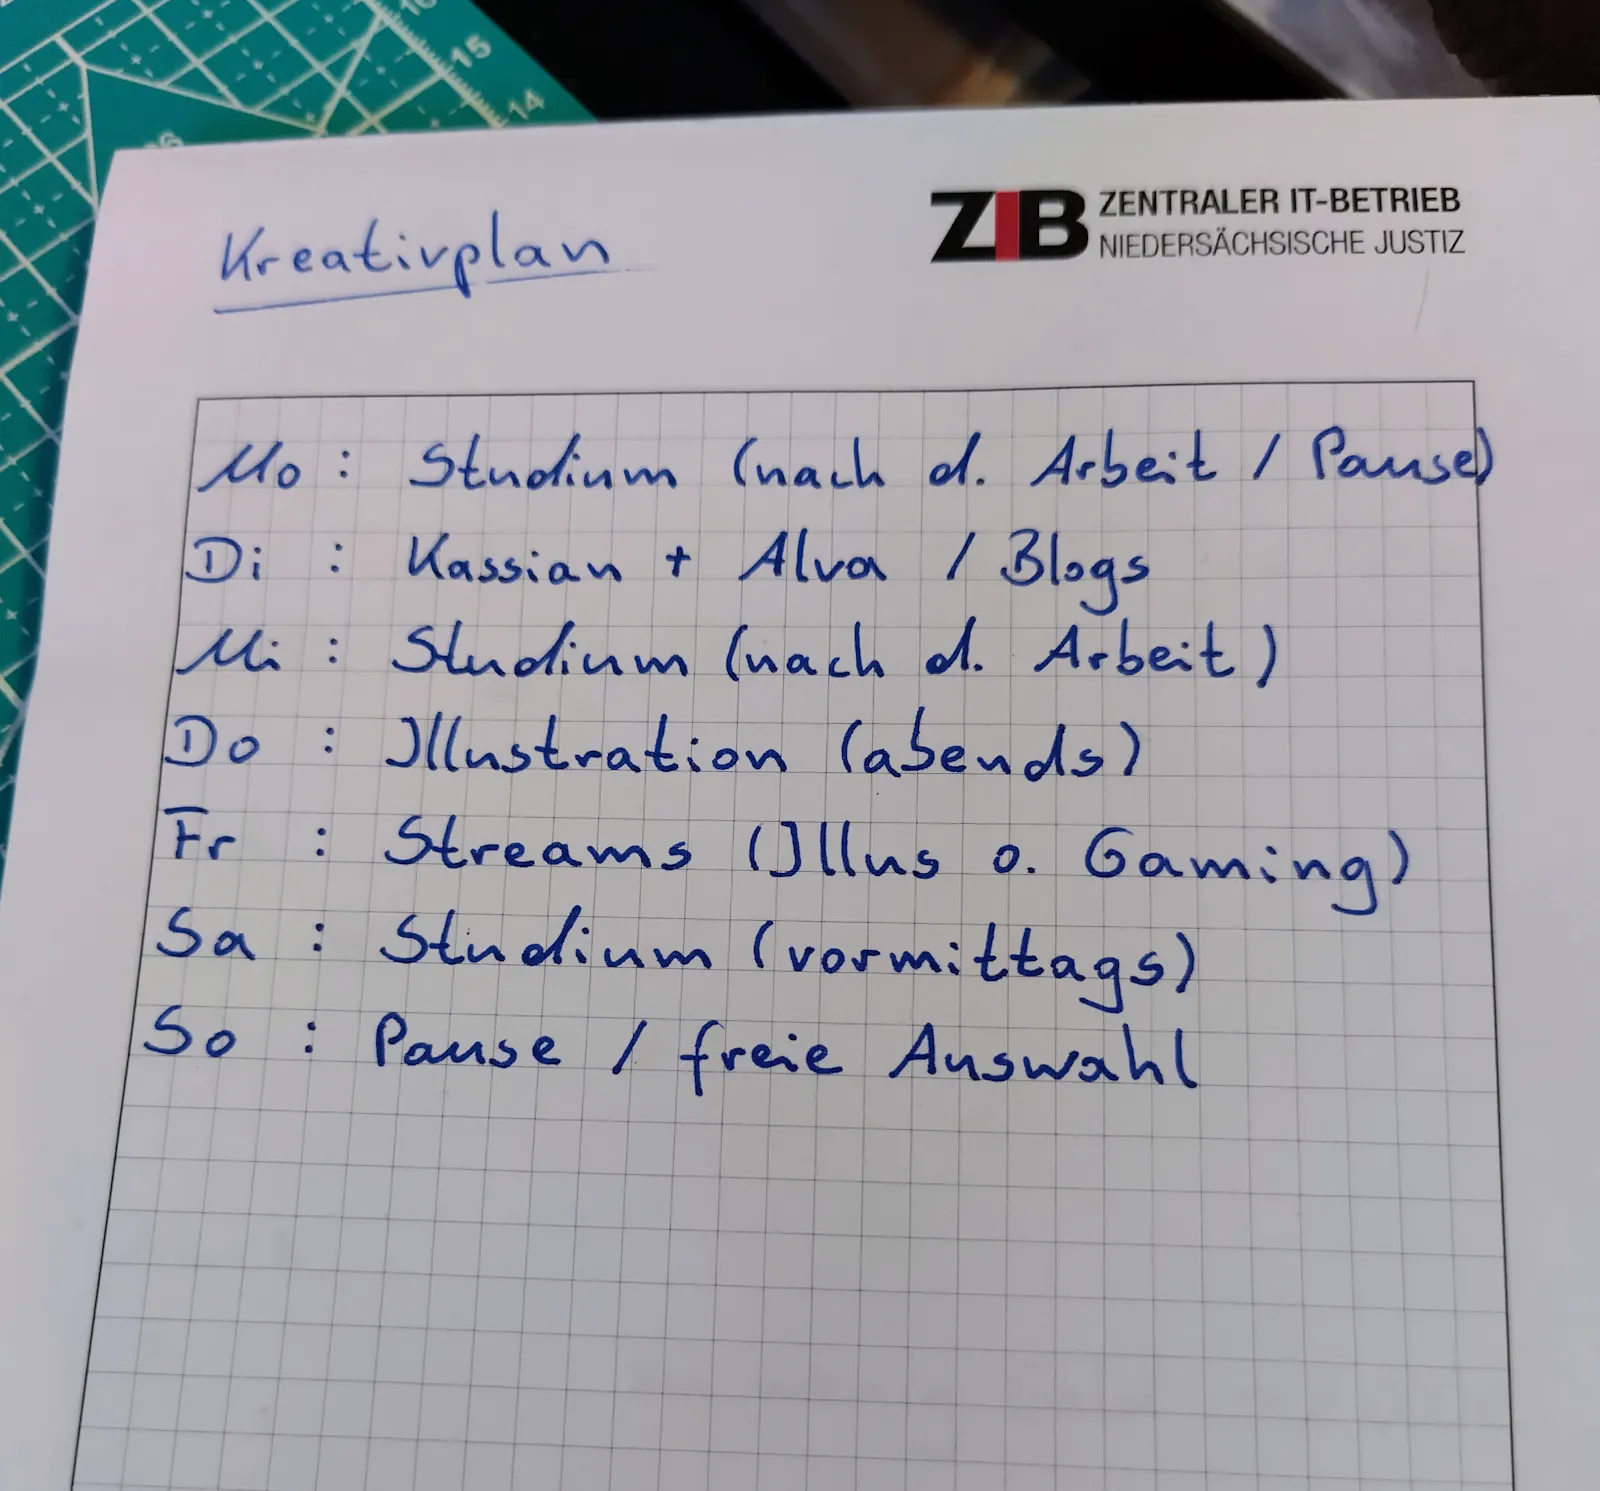 15
14
Kreativplan
ZIB ZENTRALER IT-BETRIEB
NIEDERSÄCHSISCHE JUSTIZ
Mo : Studium (nach d. Arbeit / Pause)
Di : Kassian + Alva / Blogs
Mi : Studium (nach d. Arbeit)
Do : Illustration (abends)
Fr : Streams (Illus o. Gaming)
Sa : Studium (vormittags)
So : Pause / freie Auswahl